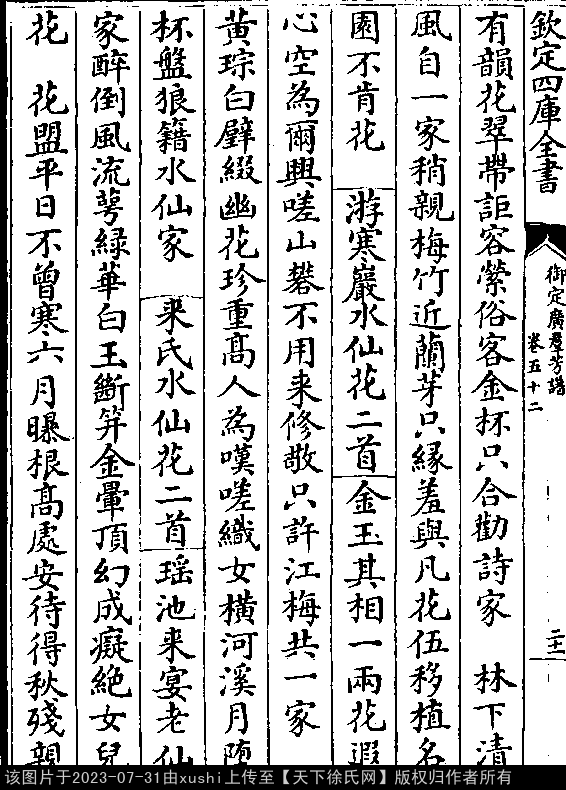 欽定四庫全書
御定廣羣芳譜
卷五十二
二十二
有韻花翠帶詎容縈俗客金杯只合勸詩家 林下清
風自一家稍親梅竹近蘭芽只緣羞與凡花伍移植名
園不肯花 游寒巖水仙花二首 金玉其相一兩花遐
心空為爾興嗟山礬不用来修敬只許江梅共一家
黄琮白璧綴幽花珍重髙人為嘆嗟織女橫河溪月墮
杯盤狼籍水仙家 来氏水仙花二首 瑶池来宴老仙
家醉倒風流萼緑華白玉斷笄金暈頂幻成癡絶女兒
花 花盟平日不曾寒六月曝根髙處安待得秋殘親
该图片于2023-07-31由xushi上传至【天下徐氏网】版权归作者所有